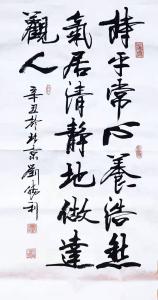 持平常心養浩然
氣居清静地做達
觀人
辛丑於北京劉俊利